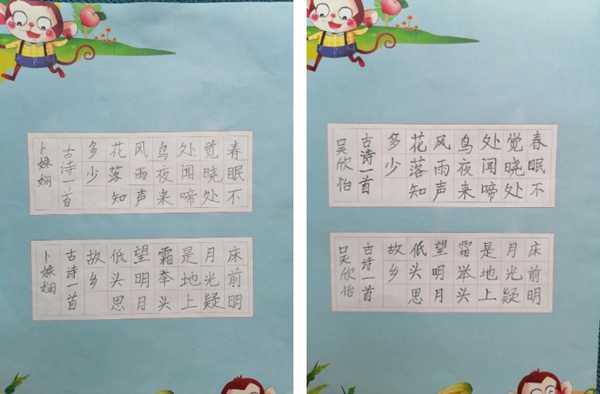 春眠不
觉晓处
处闻啼
鸟夜来
风雨声
花落知
多少
古诗一首
卜
床前明
月光疑
是地上
霜举头
望明月
低头思
故乡
古诗一首
卜
春眠不
觉晓处
处闻啼
鸟夜来
风雨声
花落知
多少
古诗一首
吴欣怡
床前明
月光疑
是地上
霜举头
望明月
低头思
故乡
古诗一首
吴欣怡